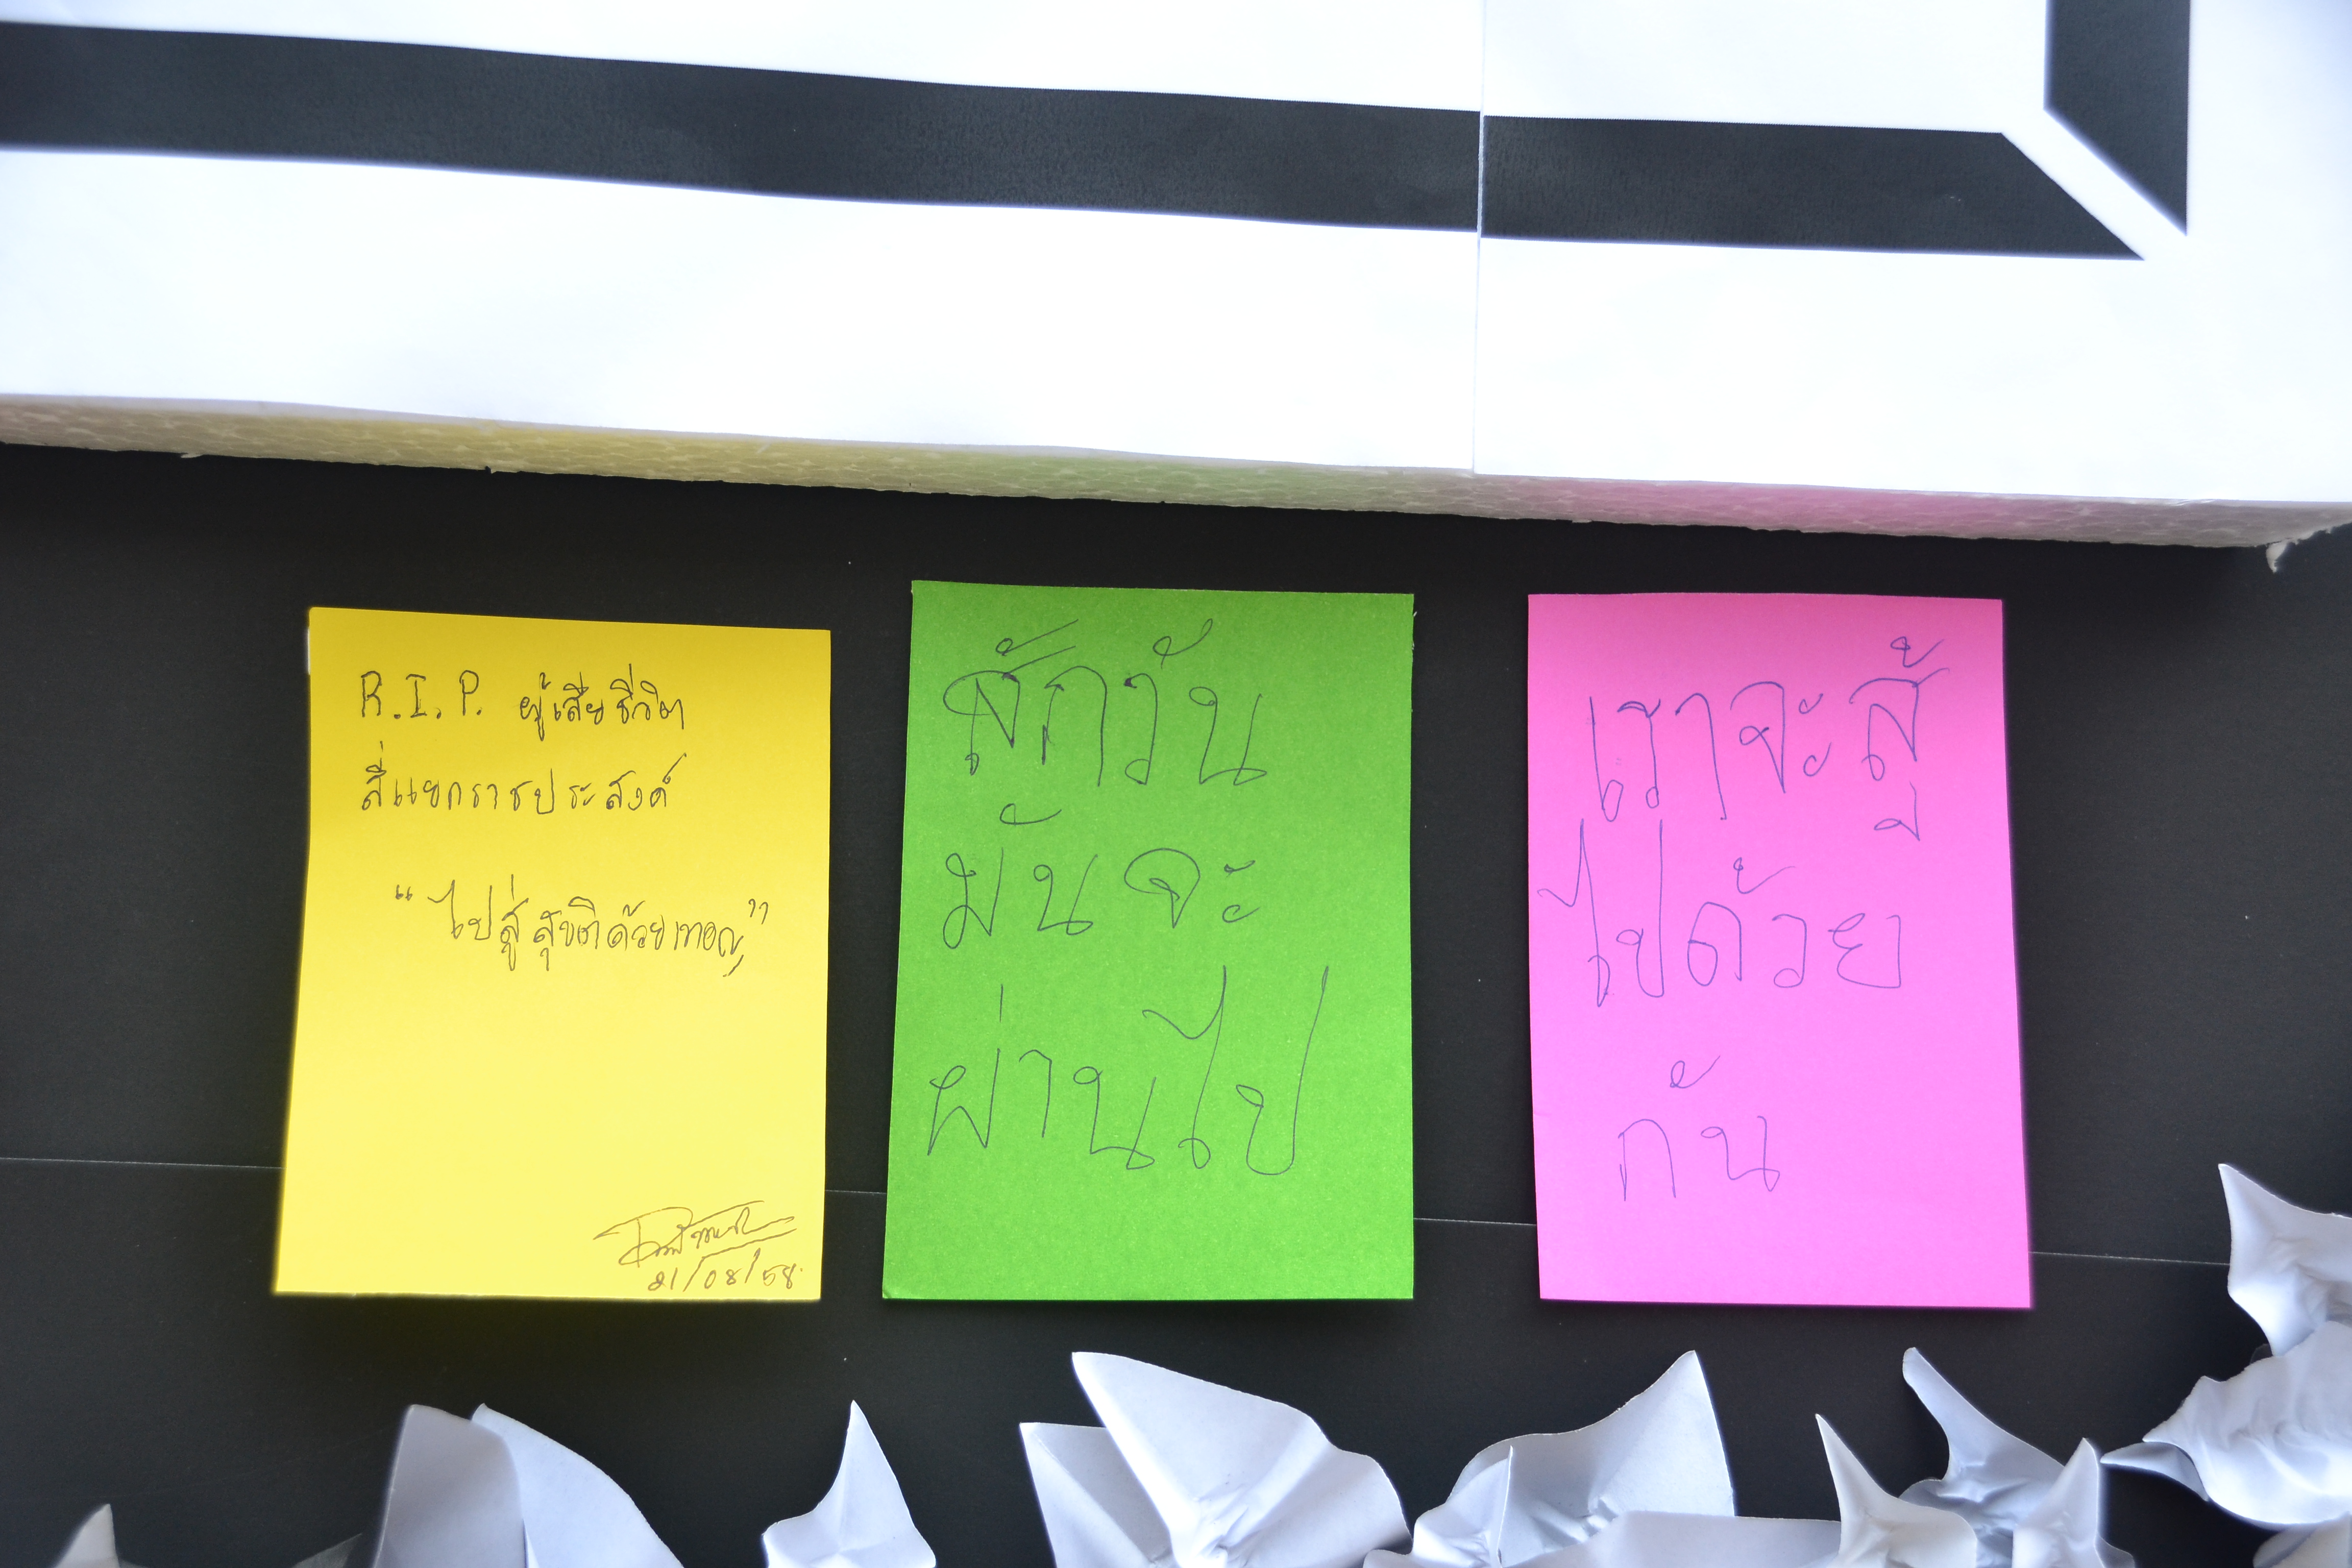 R.I.P. ผู้เสียชีวิต
สี่แยกราชประสงค์
“ไปสู่สุขติด้วยเทอญ”
21/08/58
สักวัน
มันจะ
ผ่านไป
เราจะสู้
ไปด้วย
กัน